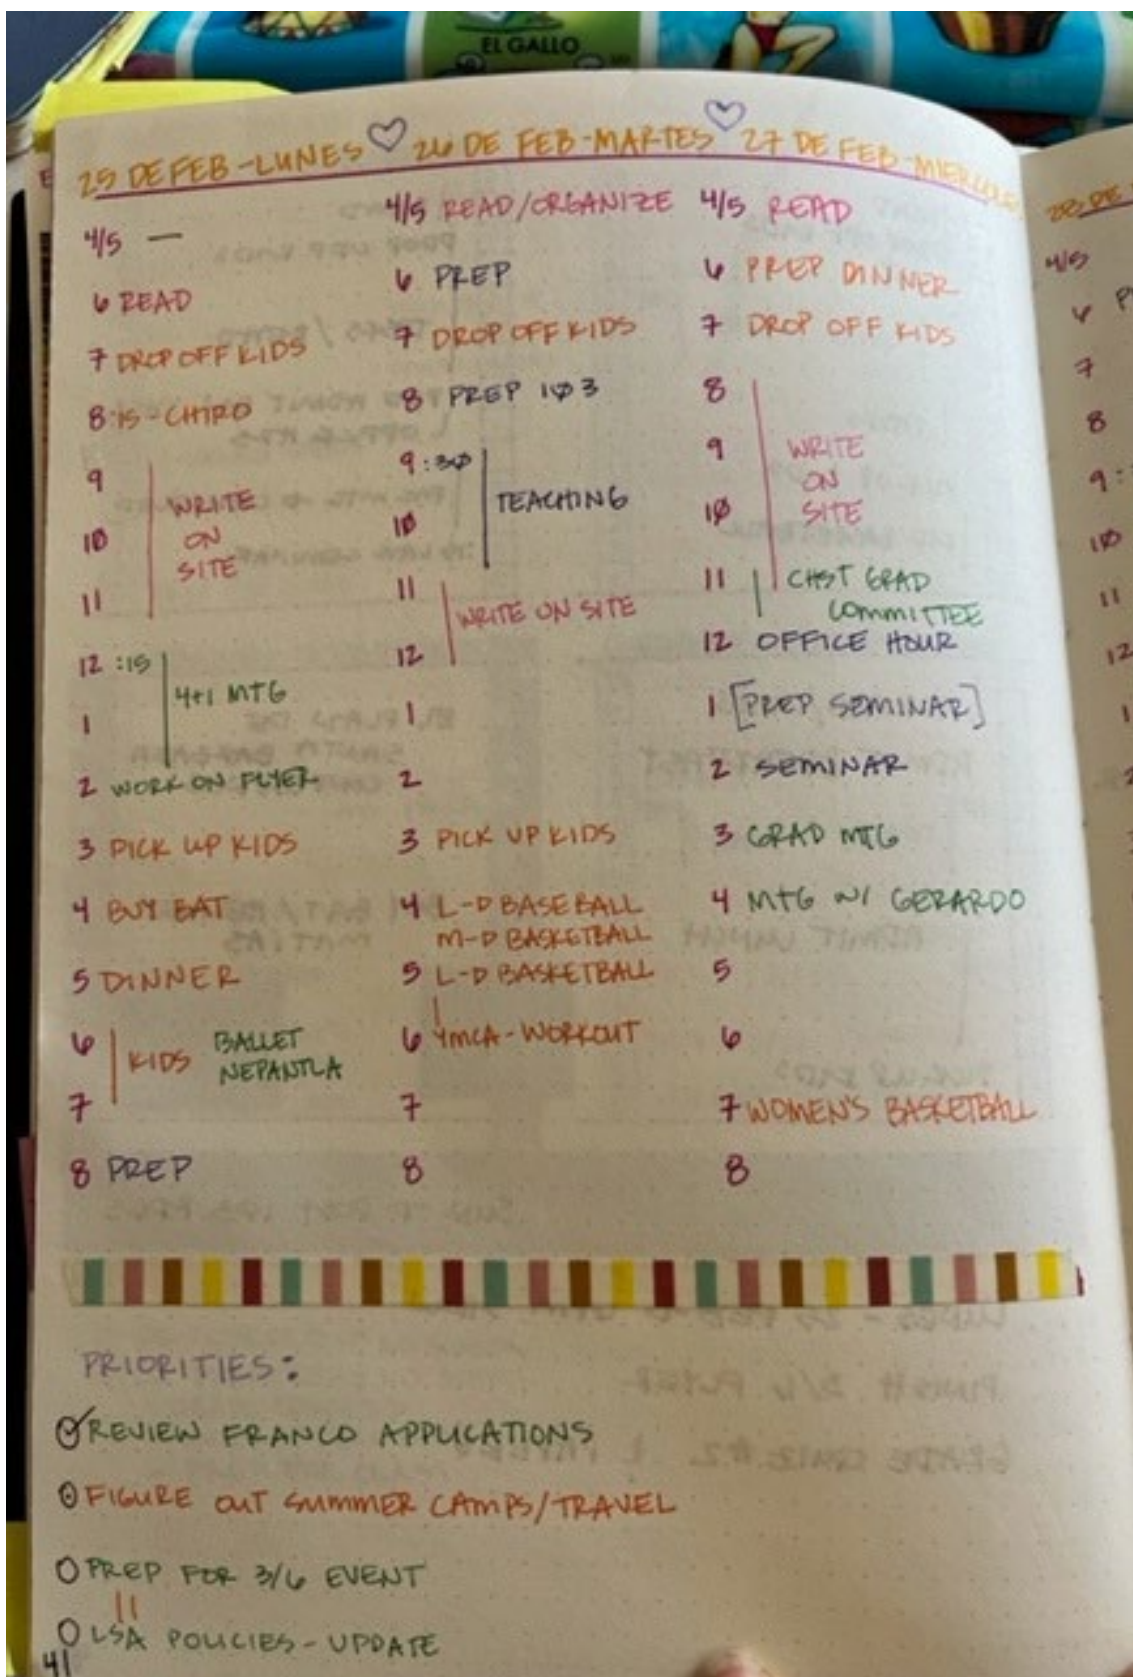 EL GALLO
25 DE FEB - LUNES
4/5 —
6 READ
7 DROP OFF KIDS
8:15 - CHIRO
9
WRITE
10 ON
SITE
11
12 :15
4+1 MTG
1
2 WORK ON FLYER
3 PICK UP KIDS
4 BUY BAT
5 DINNER
6 BALLET
KIDS NEPANTLA
7
8 PREP
26 DE FEB - MARTES
4/5 READ/ORGANIZE
6 PREP
7 DROP OFF KIDS
8 PREP 1Ø3
9:3Ø
TEACHING
1Ø
11
WRITE ON SITE
12
1
2
3 PICK UP KIDS
4 L-D BASEBALL
M-D BASKETBALL
5 L-D BASKETBALL
6 YMCA - WORKOUT
7
8
27 DE FEB - MIERCOLES
4/5 READ
6 PREP DINNER
7 DROP OFF KIDS
8
9 WRITE
ON
1Ø SITE
11 CHST GRAD
COMMITTEE
12 OFFICE HOUR
1 [PREP SEMINAR]
2 SEMINAR
3 GRAD MTG
4 MTG W/ GERARDO
5
6
7 WOMEN'S BASKETBALL
8
28 DE
4/5
6 P
7
8
9:
1Ø
11
12
1
PRIORITIES:
REVIEW FRANCO APPLICATIONS
FIGURE OUT SUMMER CAMPS/TRAVEL
PREP FOR 3/6 EVENT
LSA POLICIES - UPDATE
41